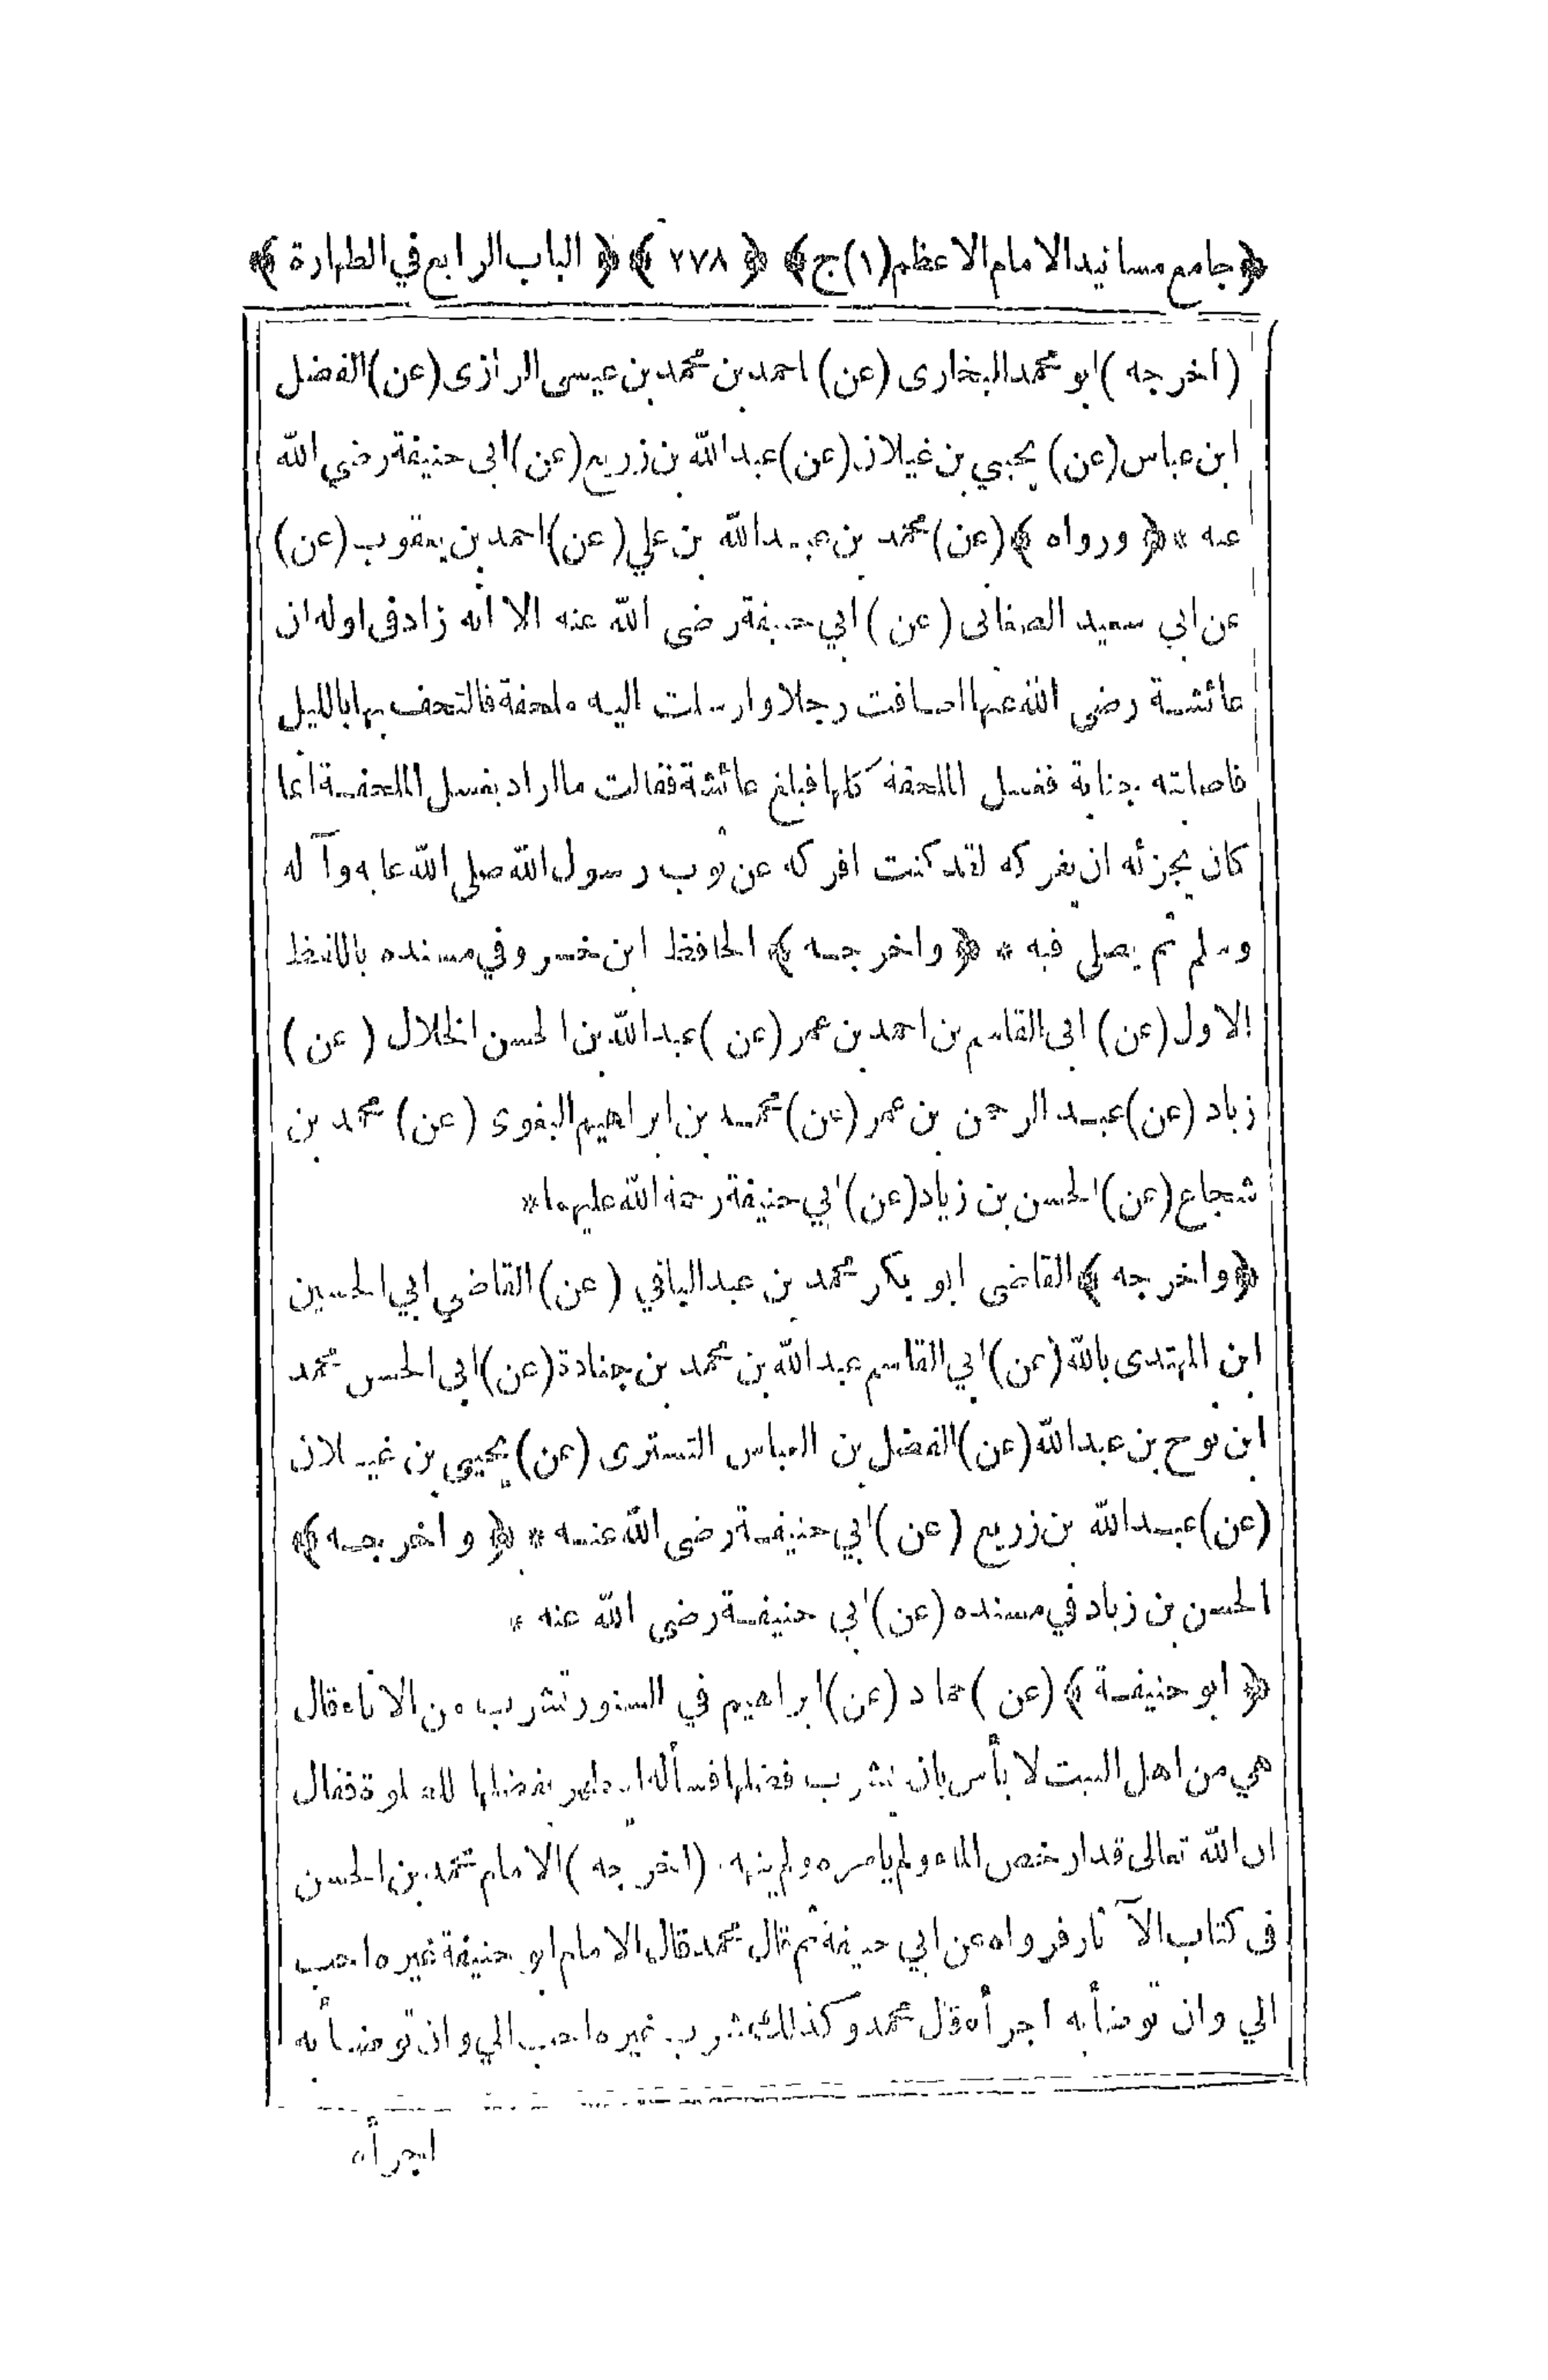 ﴿جامع مسانيد الامام الاعظم(١)ج﴾ ﴿ ٢٧٨ ﴾ ﴿ الباب الرابع في الطهارة ﴾
(اخرجه ) ابو محمد البخارى (عن) احمد بن محمد بن عيسى الرازى (عن) الفضل
ابن عباس (عن) يحيي بن غيلان (عن) عبد الله بن زريع (عن) ابى حنيفة رضي الله
عنه * ﴿ ورواه ﴾ (عن) محمد بن عبد الله بن علي (عن) احمد بن يعقوب (عن)
عن ابي سعيد الصغانى (عن ) ابي حنيفة رضى الله عنه الا انه زاد فى اوله ان
عائشة رضي الله عنها اضافت رجلا وارسلت اليه ملحفة فالتحف بها بالليل
فاصابته جنابة فغسل الملحفة كلها فبلغ عائشة فقالت ما اراد بغسل الملحفة انما
كان يجزئه ان يفركه لقد كنت افركه عن ثوب رسول الله صلى الله عليه وآله
وسلم ثم يصلى فيه * ﴿ واخرجه ﴾ الحافظ ابن خسر وفي مسنده باللفظ
الاول (عن) ابى القاسم بن احمد بن عمر (عن ) عبد الله بن الحسن الخلال ( عن )
زياد (عن) عبد الرحمن بن عمر (عن) محمد بن ابراهيم البغوى (عن) محمد بن
شجاع (عن) الحسن بن زياد (عن) ابي حنيفة رحمة الله عليهما*
﴿واخرجه ﴾ القاضى ابو بكر محمد بن عبد الباقي ( عن) القاضي ابي الحسين
ابن المهتدى بالله (عن) ابي القاسم عبد الله بن محمد بن جنادة (عن) ابى الحسن محمد
ابن نوح بن عبد الله (عن) الفضل بن العباس التسترى (عن) يحيى بن غيلان
(عن) عبد الله بن زريع (عن ) ابي حنيفة رضى الله عنه * ﴿ واخرجه ﴾
الحسن بن زياد في مسنده (عن) ابي حنيفة رضي الله عنه *
﴿ ابو حنيفة ﴾ (عن ) حماد (عن) ابراهيم في السنور تشرب من الاناء قال
هي من اهل البيت لا بأس بان يشرب فضلها فسأله ايطهر بفضلها للصلوة فقال
ان الله تعالى قد ارخص الماء ولم يامره ولم ينهه . (اخرجه ) الامام محمد بن الحسن
فى كتاب الآثار فرواه عن ابي حنيفة ثم قال محمد قال الامام ابو حنيفة غيره احب
الي وان توضأ به اجزأه قال محمد وكذلك يشرب غيره احب الي وان توضأ به
اجزأه